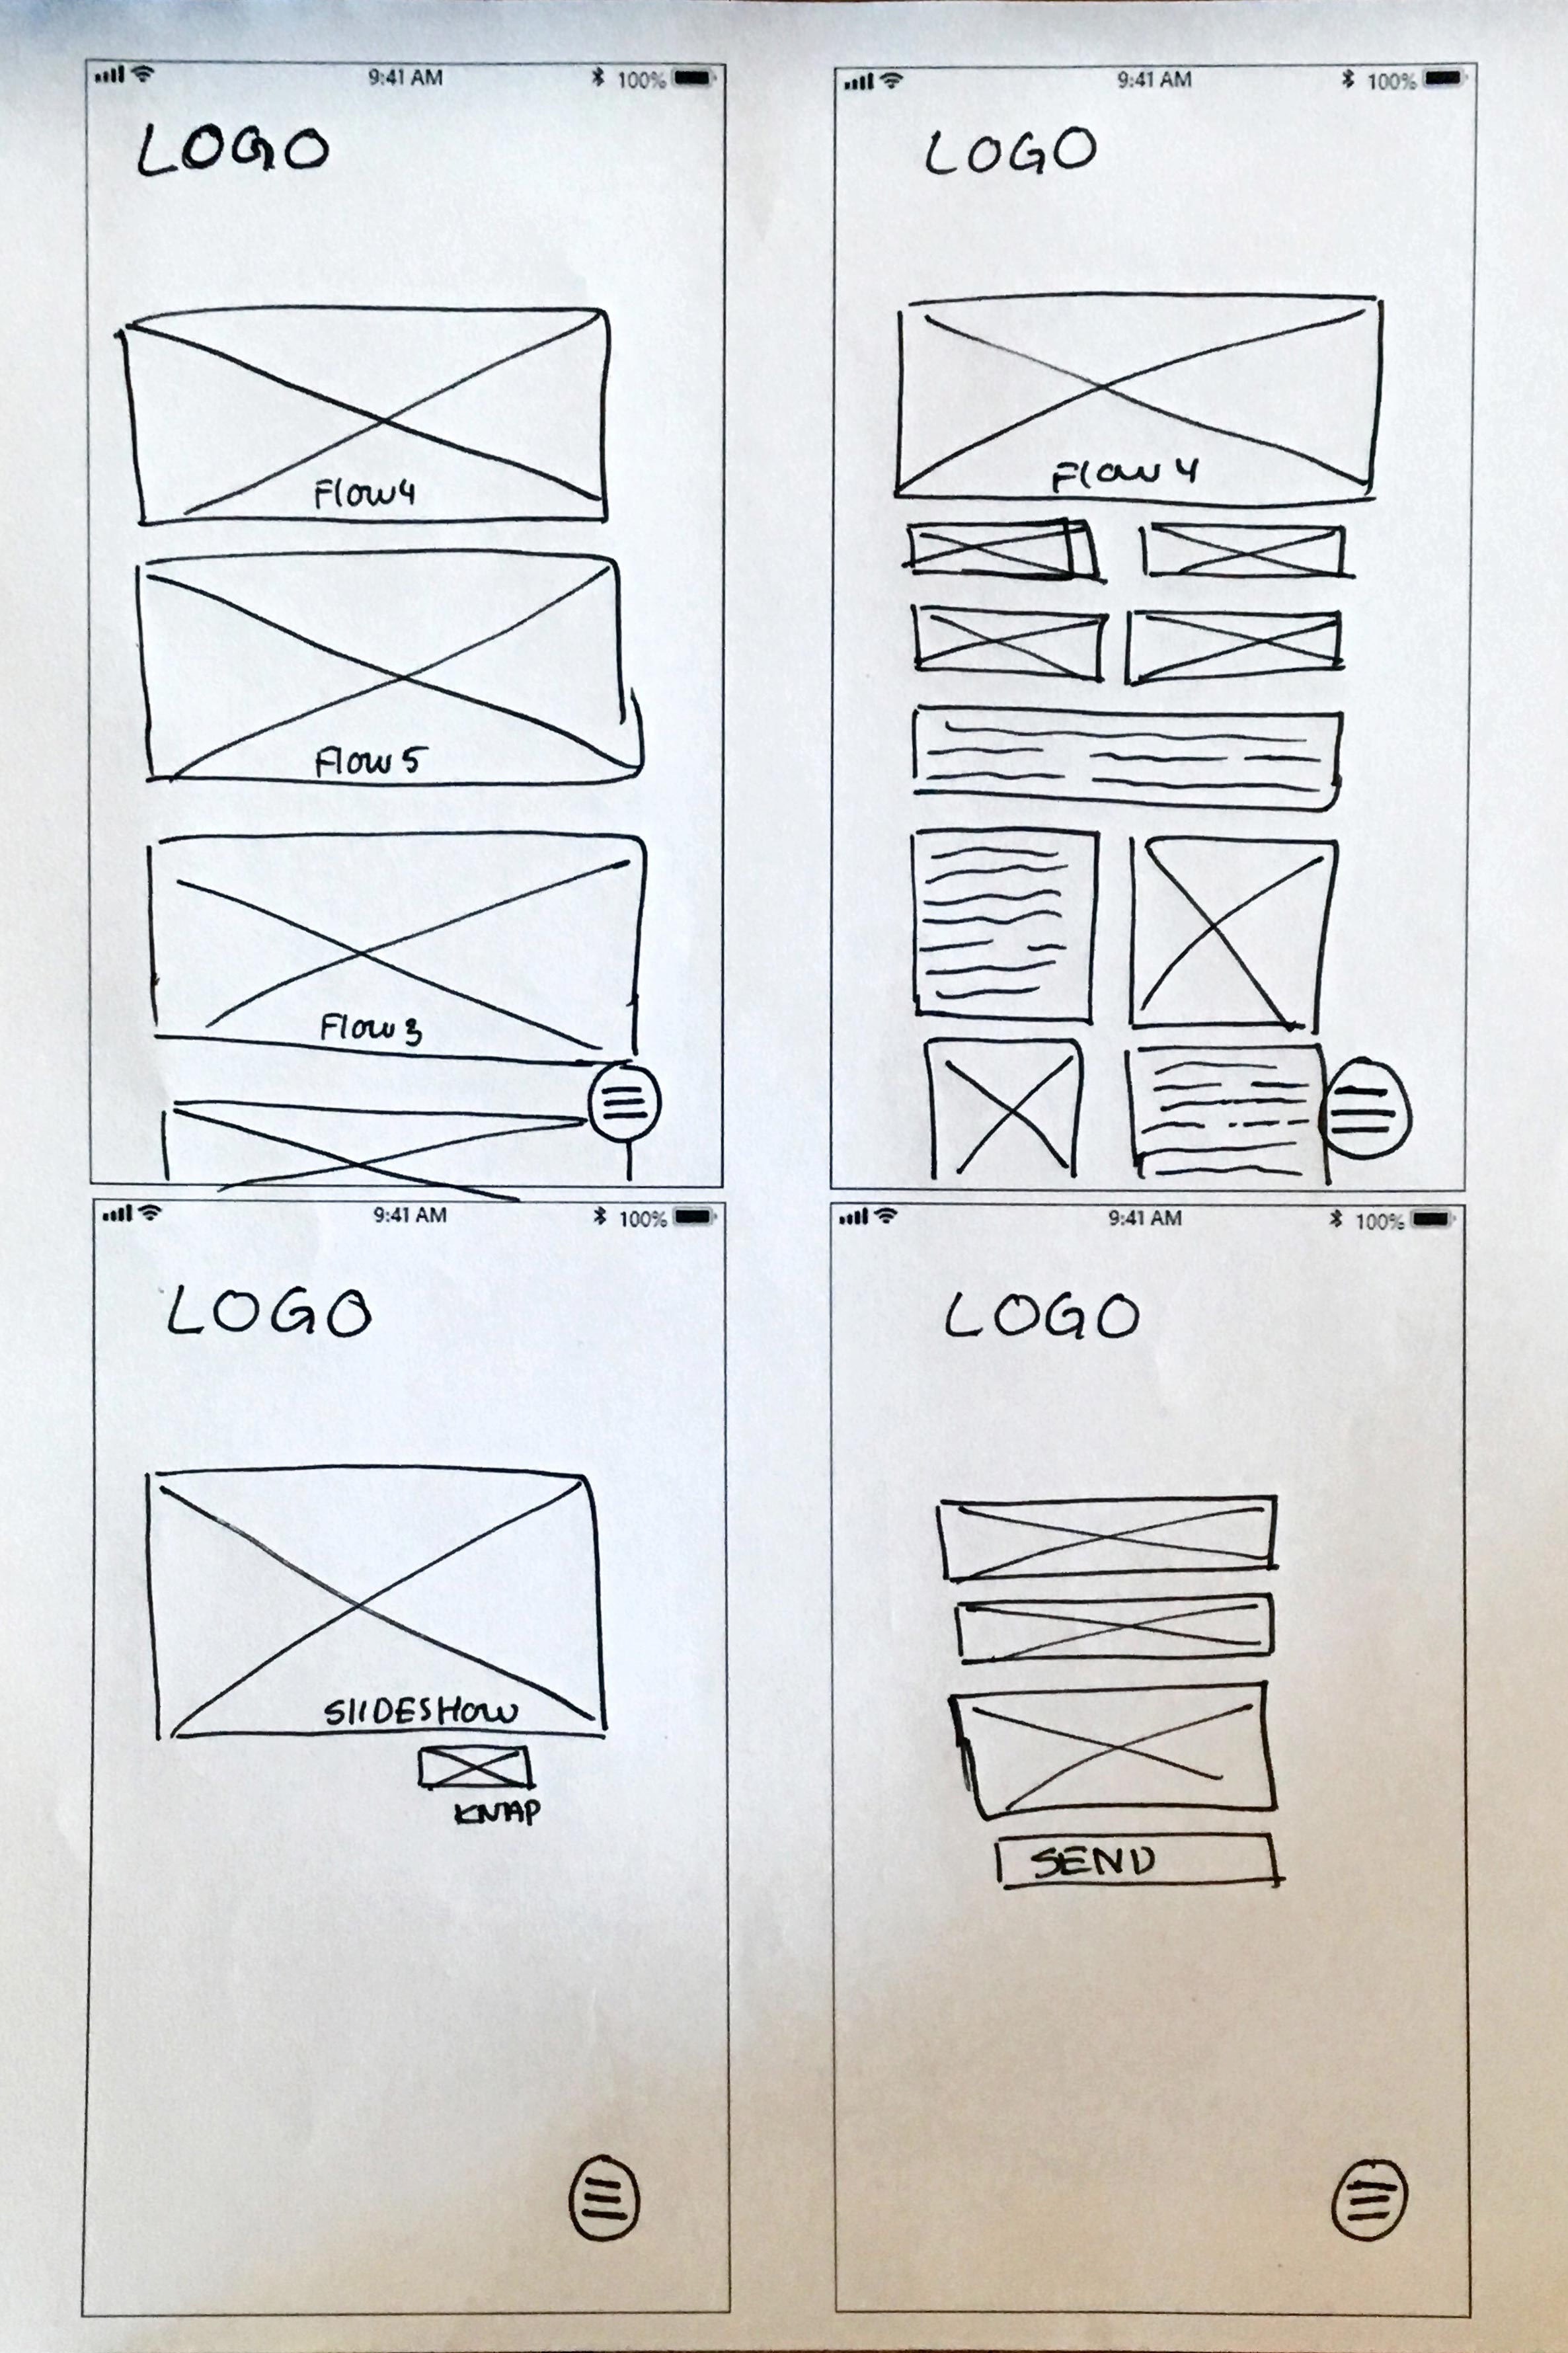 9:41 AM 100%
LOGO
Flow4
Flow 5
Flow 3
9:41 AM 100%
LOGO
Flow 4
9:41 AM 100%
LOGO
SlIDESHOW
KNAP
9:41 AM 100%
LOGO
SEND